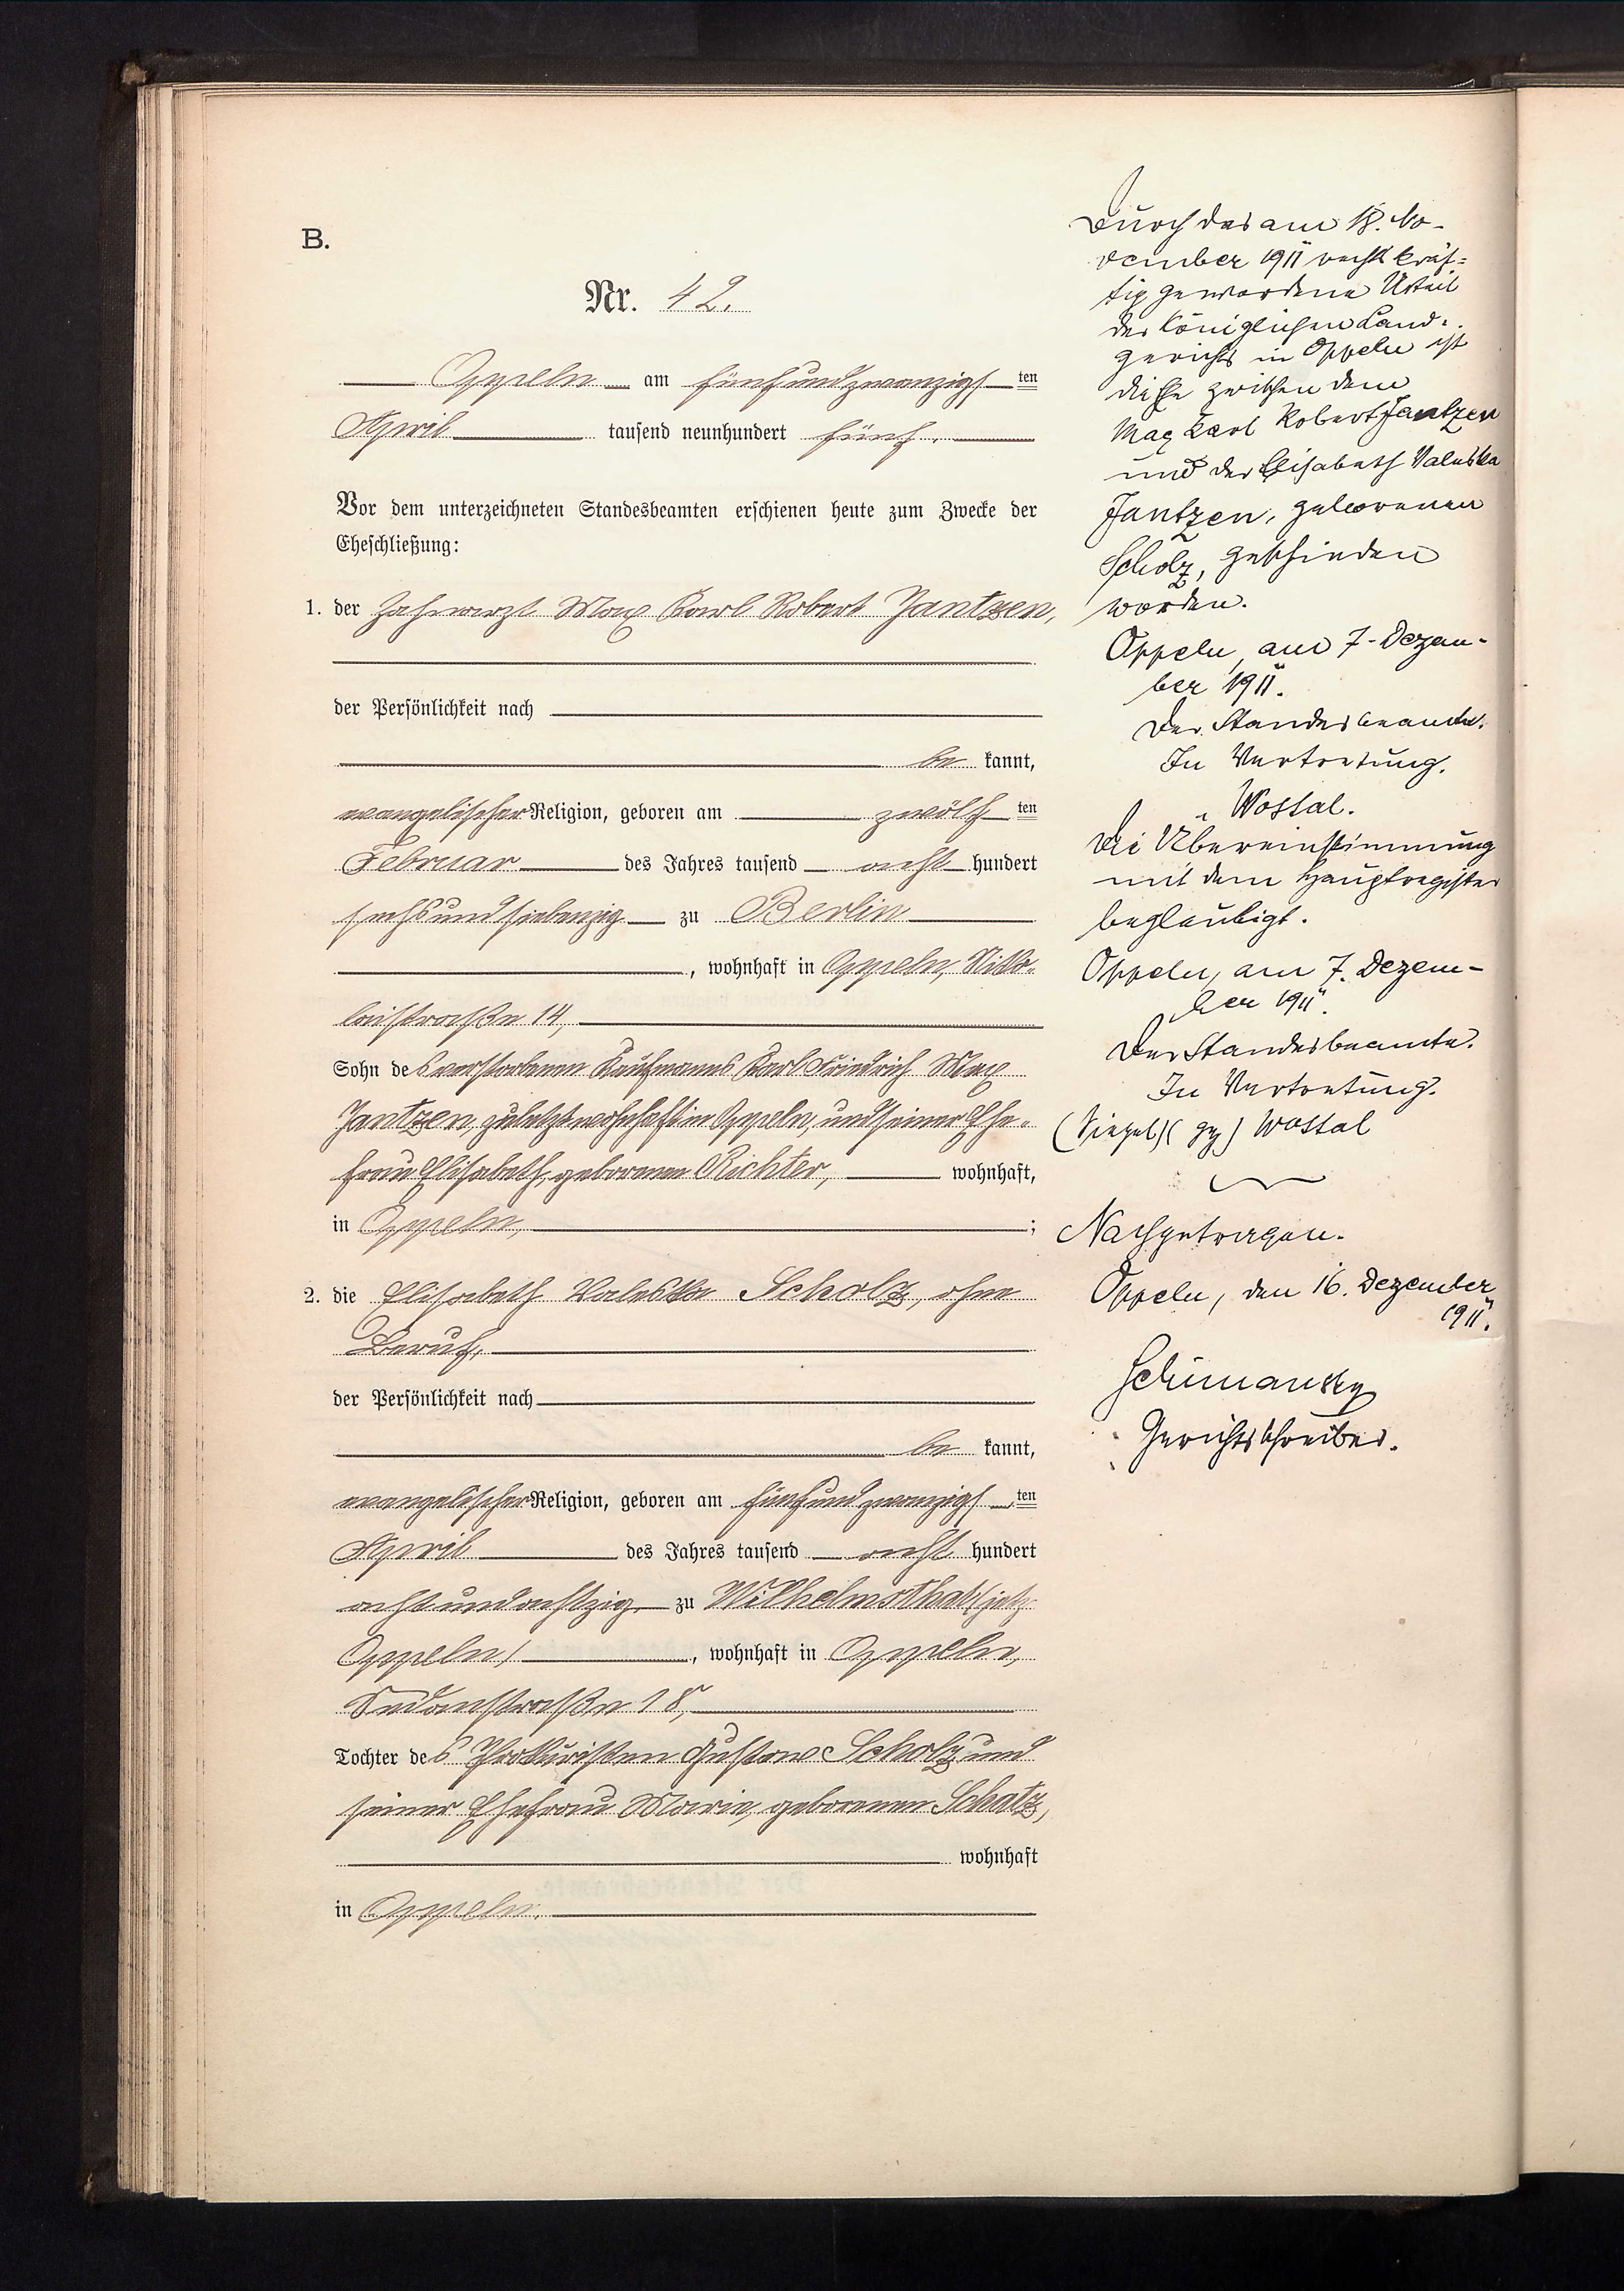 B.
Nr. 42.
Oppeln am fünfundzwanzigsten
April tausend neunhundert fünf.
Vor dem unterzeichneten Standesbeamten erschienen heute zum Zwecke der
Eheschließung:
1. der Zahnarzt Max Karl Robert Jantzen,
der Persönlichkeit nach
be kannt,
evangelischer Religion, geboren am zwölften
Februar des Jahres tausend acht hundert
sechsundsiebenzig zu Berlin
, wohnhaft in Oppeln, Niko-
laistraße 14,
Sohn des verstorbenen Kaufmanns Karl Friedrich Max
Jantzen, zuletzt wohnhaft in Oppeln, und seiner Ehe-
frau Elisabeth, geborenen Richter, wohnhaft,
in Oppeln, ;
2. die Elisabeth Valeska Scholz, ohne
Beruf,
der Persönlichkeit nach
be kannt,
evangelischer Religion, geboren am fünfundzwanzigsten
April des Jahres tausend acht hundert
achtundachtzig zu Wilhelmsthal (jetzt
Oppeln) , wohnhaft in Oppeln,
Sedanstraße 18,
Tochter des Prokuristen Gustav Scholz und
seiner Ehefrau Marie, geborenen Schatz,
wohnhaft
in Oppeln.
Durch das am 18. No-
vember 1911 rechtskräf-
tig gewordene Urteil
des Königlichen Land-
gerichts in Oppeln ist
die Ehe zwischen dem
Max Karl Robert Jantzen
und der Elisabeth Valeska
Jantzen, geborenen
Scholz, geschieden
worden.
Oppeln, am 7. Dezem-
ber 1911.
Der Standesbeamte.
In Vertretung.
Wossal.
Die Übereinstimmung
mit dem Hauptregister
beglaubigt.
Oppeln, am 7. Dezem-
ber 1911.
Der Standesbeamte.
In Vertretung.
(Siegel) (gez) Wossal
Nachgetragen.
Oppeln, den 16. Dezember
1911.
Schimansky
Gerichtsschreiber.